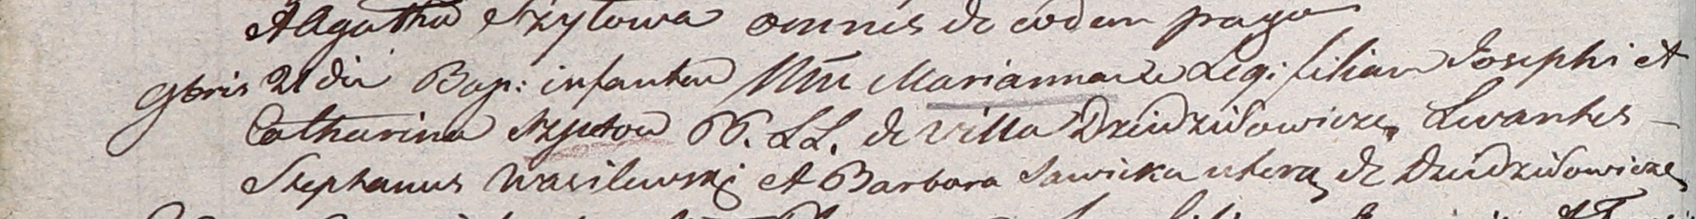 et Agatha Szytowa omnes de eodem pago
9bris 21 die Bap: infantem Nne Mariannam Legi: filiam Josephi et
Catharina Szytow PP. LL. de villa Dziedziłowicze, Levantes
Stephanus Wasilewski et Barbara Sawicka uterq de Dziedziłowicze